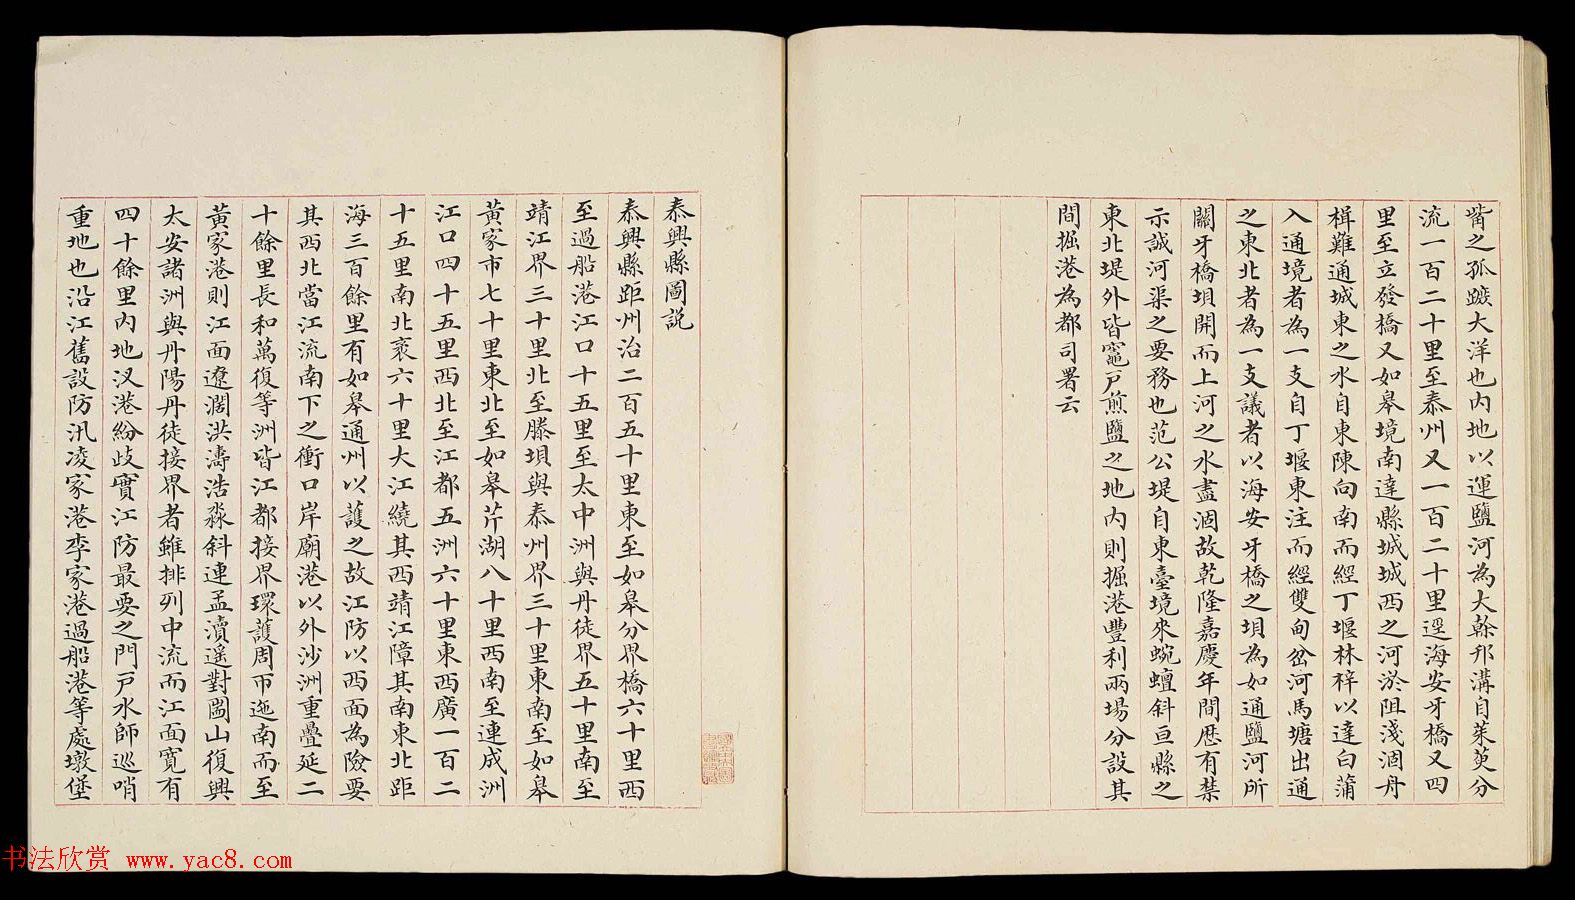 觜之孤蹠大洋也内地以運鹽河為大榦邗溝自茱萸分
流一百二十里至泰州又一百二十里逕海安牙橋又四
里至立發橋又如皋境南達縣城城西之河淤阻淺涸舟
楫難通城東之水自東陳向南而經丁堰林梓以達白蒲
入通境者為一支自丁堰東注而經雙甸岔河馬塘出通
之東北者為一支議者以海安牙橋之垻為如通鹽河所
關牙橋垻開而上河之水盡涸故乾隆嘉慶年間歴有禁
示誠河渠之要務也范公堤自東臺境來蜿蟺斜亘縣之
東北堤外皆竈戸煎鹽之地内則掘港豐利兩場分設其
間掘港為都司署云
泰興縣圖説
泰興縣距州治二百五十里東至如皋分界橋六十里西
至過船港江口十五里至太中洲與丹徒界五十里南至
靖江界三十里北至滕垻與泰州界三十里東南至如皋
黃家市七十里東北至如皋芹湖八十里西南至連成洲
江口四十五里西北至江都五洲六十里東西廣一百二
十五里南北袤六十里大江繞其西靖江障其南東北距
海三百餘里有如皋通州以護之故江防以西面為險要
其西北當江流南下之衝口岸廟港以外沙洲重疊延二
十餘里長和萬復等洲皆江都接界環護周帀迤南而至
黃家港則江面遼濶洪濤浩淼斜連孟瀆遥對圌山復興
太安諸洲與丹陽丹徒接界者雖排列中流而江面寬有
四十餘里内地汊港紛歧實江防最要之門戸水師巡哨
重地也沿江舊設防汛凌家港李家港過船港等處墩堡
书法欣赏 www.yac8.com